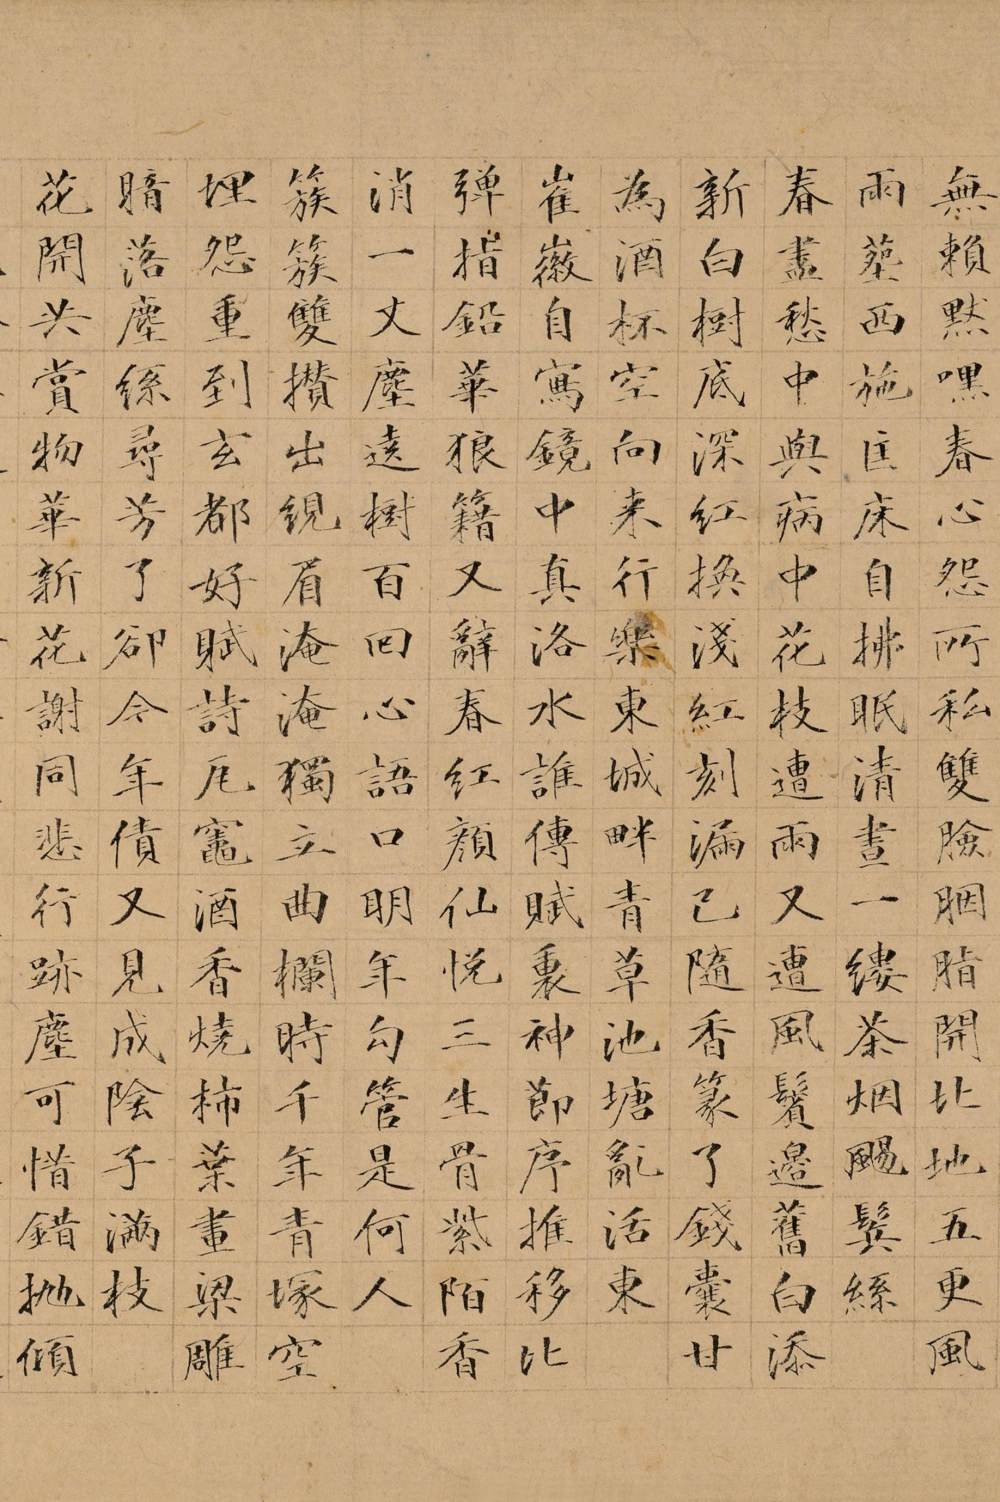 無賴默嘿春心怨所私雙臉胭脂開北地五更風
雨葬西施匡床自拂眠清晝一縷茶烟颺鬢絲
春盡愁中與病中花枝遭雨又遭風鬢邊舊白添
新白樹底深紅換淺紅刻漏已隨香篆了錢囊甘
為酒杯空向來行樂東城畔青草池塘亂活東
崔徽自寫鏡中真洛水誰傳賦裏神節序推移比
弹指鉛華狼籍又辭春紅顏仙悦三生骨紫陌香
消一丈塵遶樹百回心語口明年勾管是何人
簇簇雙攅出綂眉淹淹獨立曲欄時千年青塚空
埋怨重到玄都好賦詩厇竈酒香燒柿葉畫梁雕
暗落塵絲尋芳了卻今年債又見成陰子滿枝
花開共賞物華新花謝同悲行跡塵可惜錯抛傾